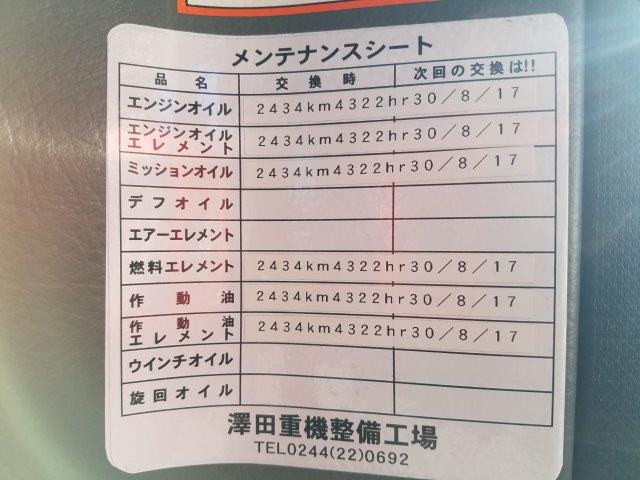 メンテナンスシート
品名 交換時 次回の交換は!!
エンジンオイル 2434km4322hr30/8/17
エンジンオイル
エレメント 2434km4322hr30/8/17
ミッションオイル 2434km4322hr30/8/17
デフオイル
エアーエレメント
燃料エレメント 2434km4322hr30/8/17
作動油 2434km4322hr30/8/17
作動油
エレメント 2434km4322hr30/8/17
ウインチオイル
旋回オイル
澤田重機整備工場
TEL0244(22)0692